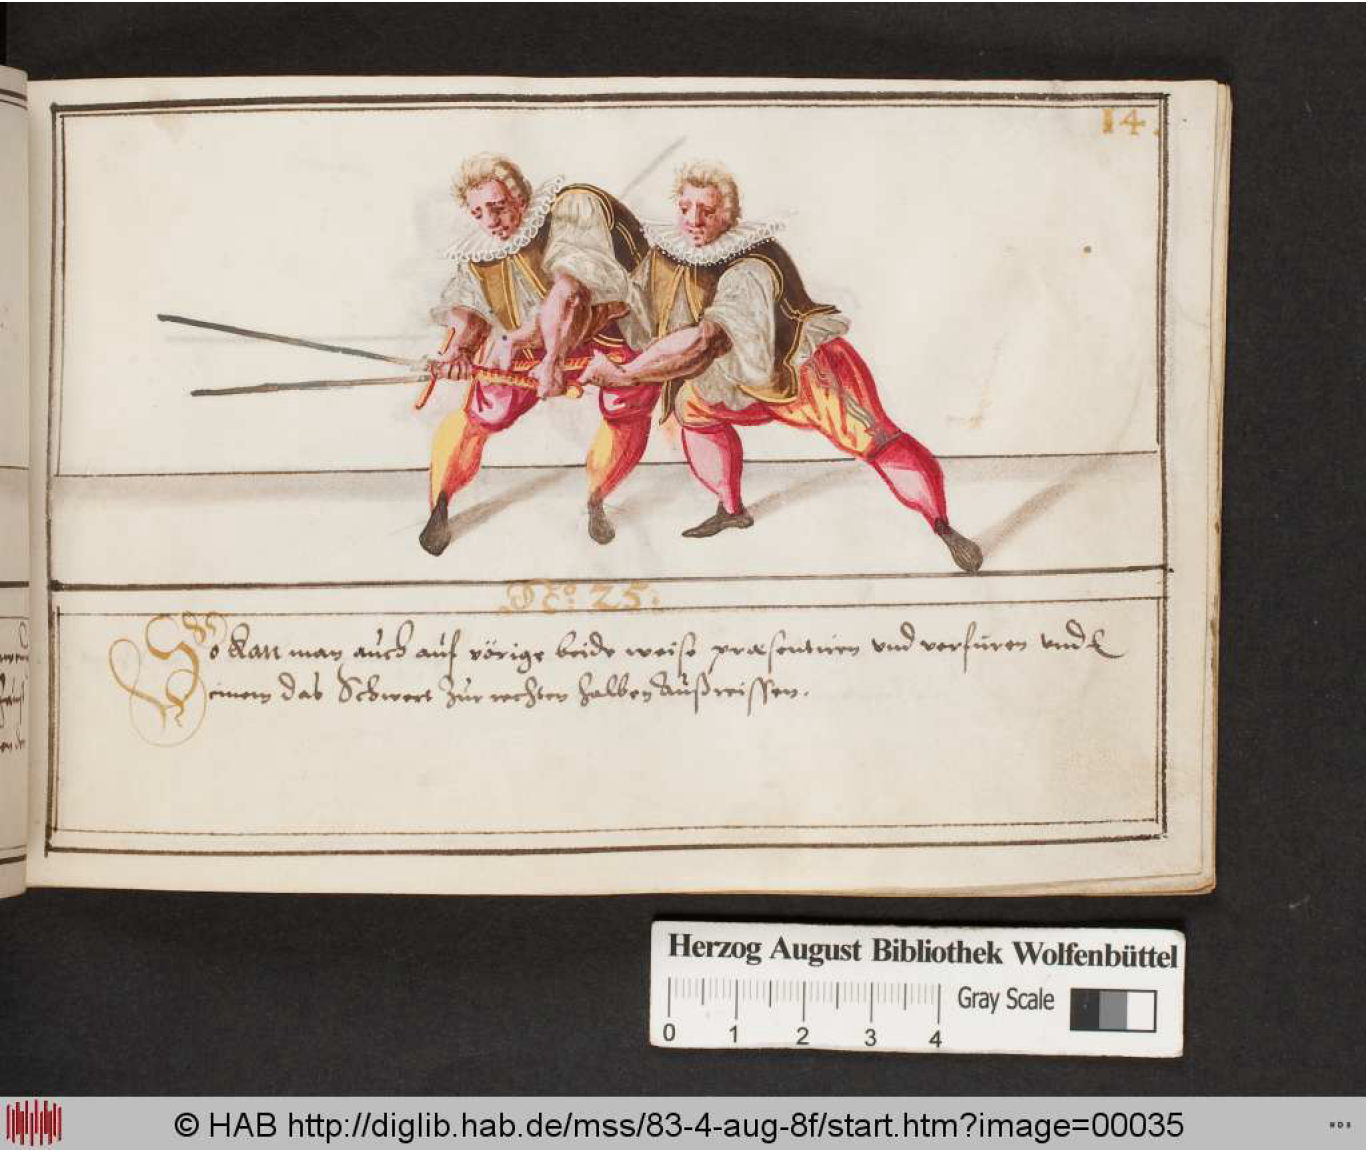 14.
No. 25.
So kan man auch auf vörige beide weise præsentiren und verfüren und
einem das Schwert zur rechten halben außreissen.
Herzog August Bibliothek Wolfenbüttel
Gray Scale
0 1 2 3 4
© HAB http://diglib.hab.de/mss/83-4-aug-8f/start.htm?image=00035